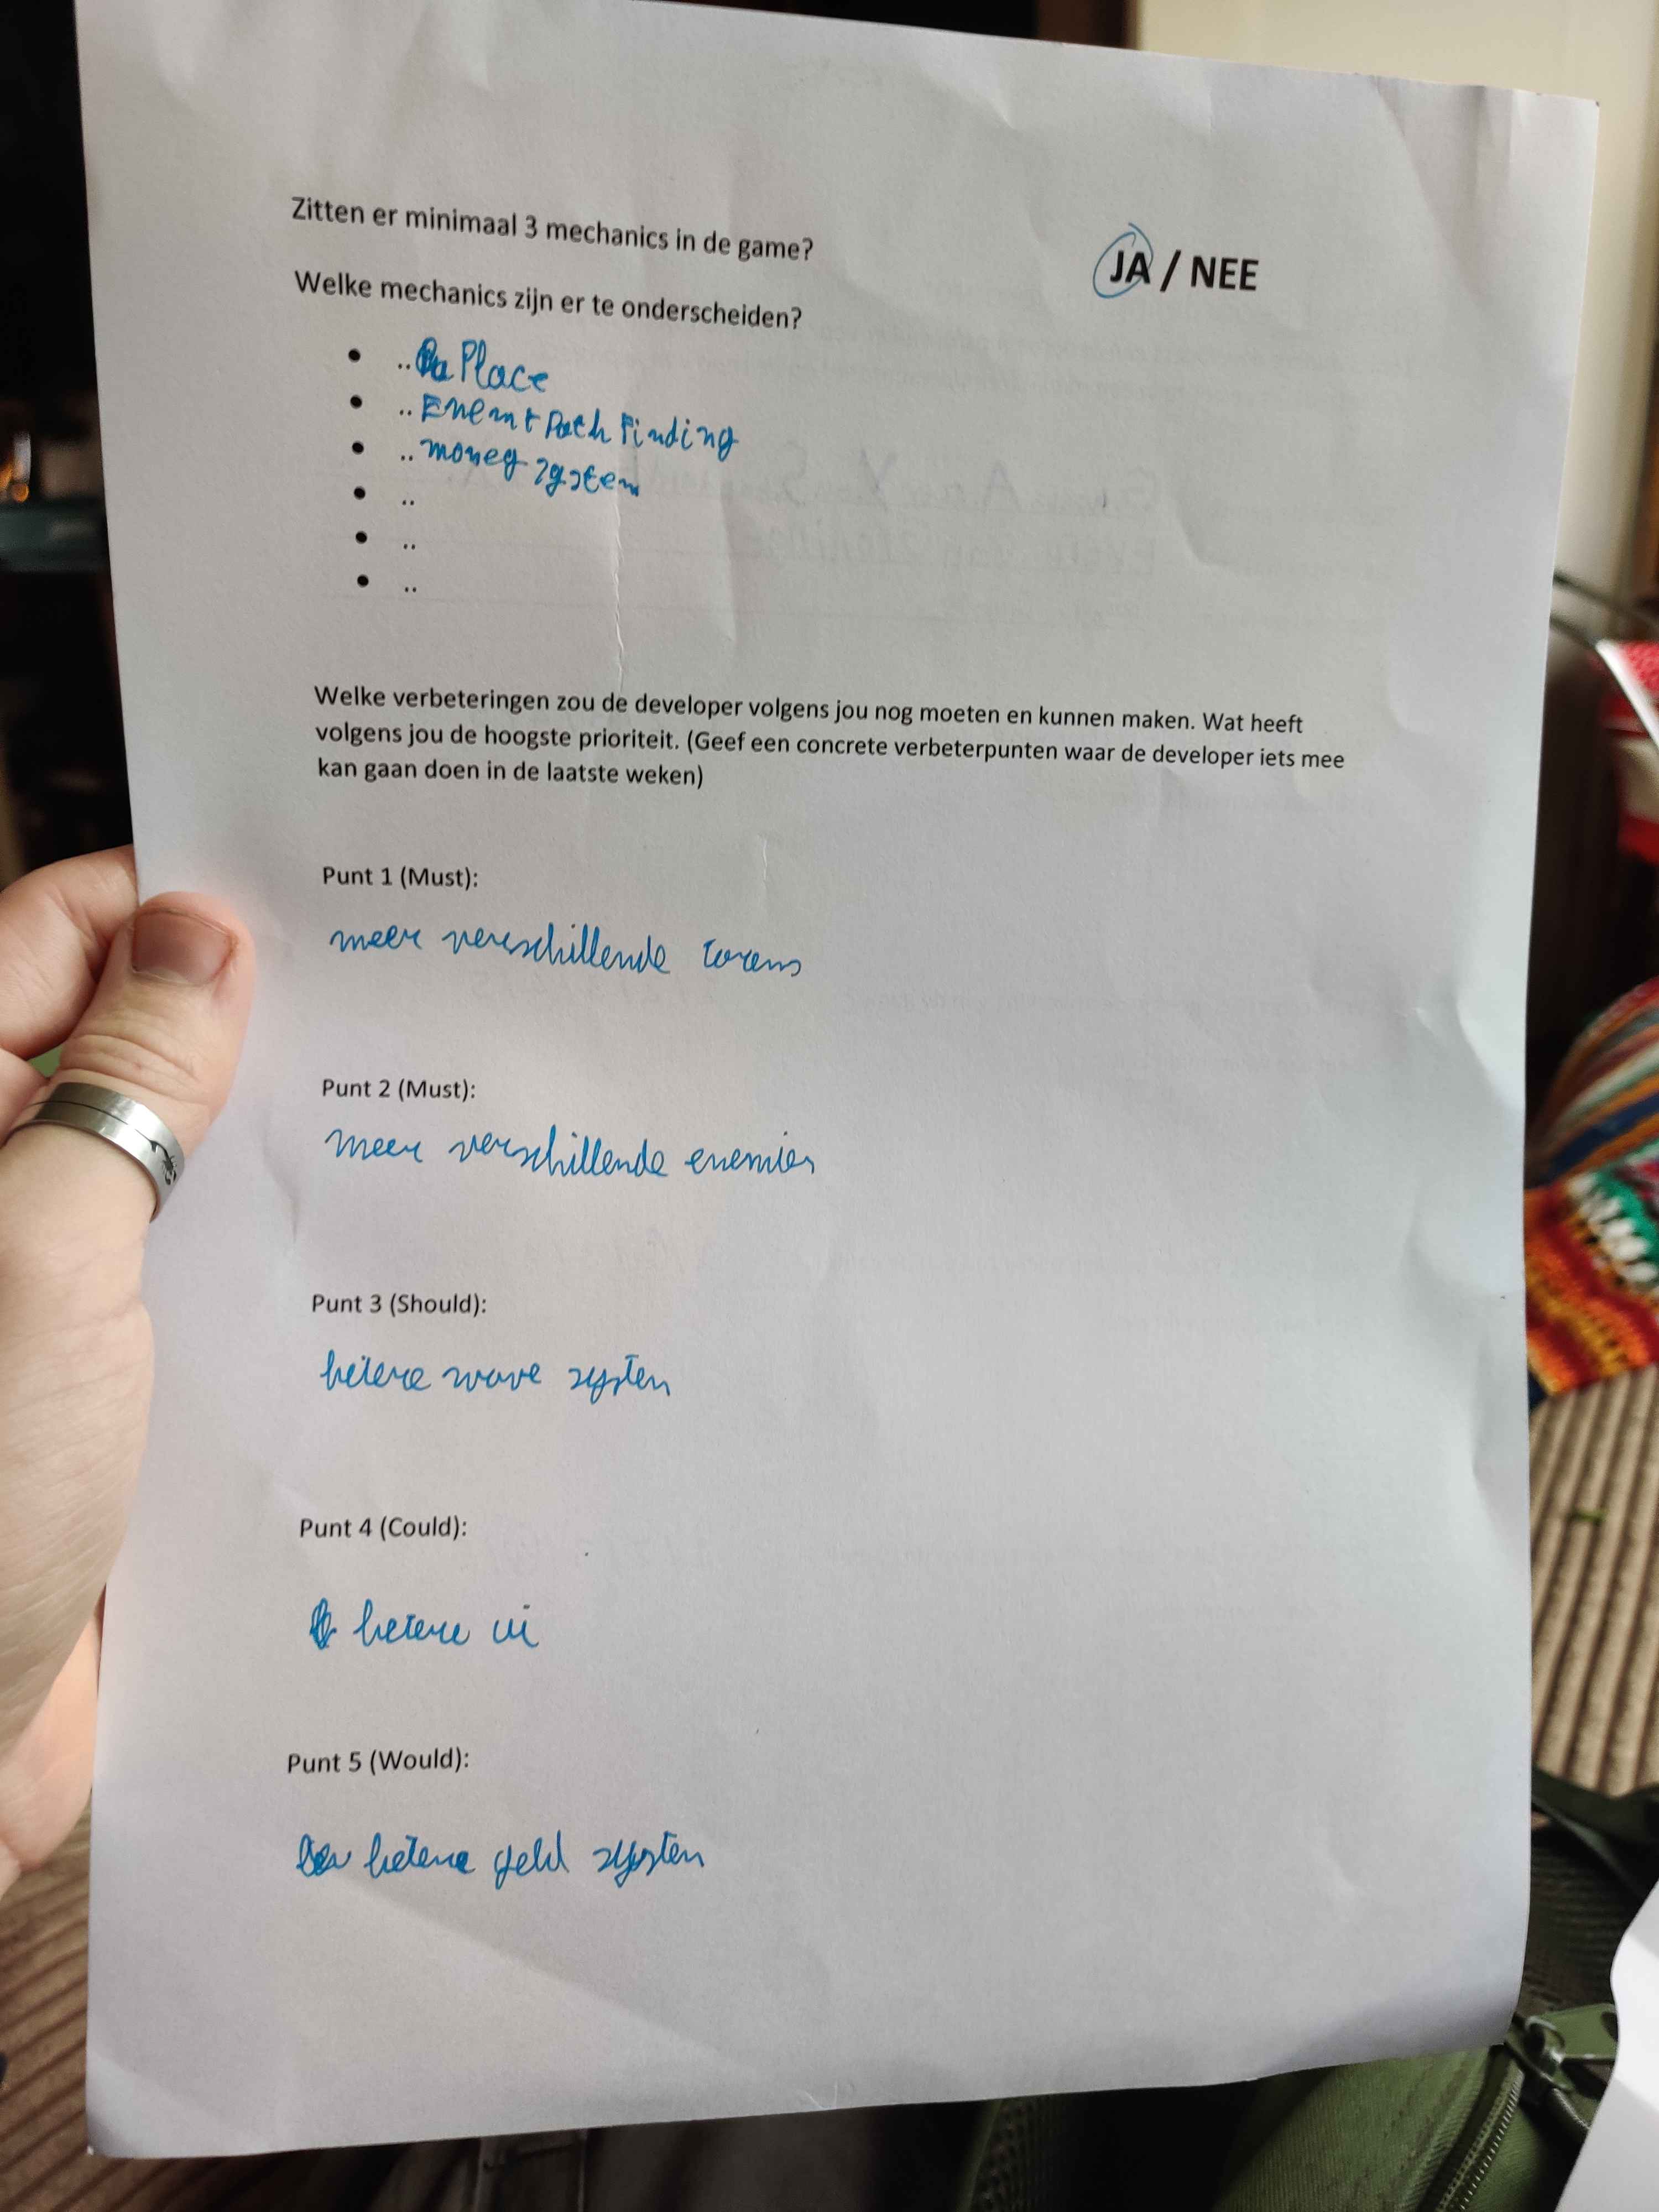 Zitten er minimaal 3 mechanics in de game?
JA / NEE
Welke mechanics zijn er te onderscheiden?
• .. Place
• .. Enemt Path Finding
• .. money system
• ..
• ..
• ..
Welke verbeteringen zou de developer volgens jou nog moeten en kunnen maken. Wat heeft
volgens jou de hoogste prioriteit. (Geef een concrete verbeterpunten waar de developer iets mee
kan gaan doen in de laatste weken)
Punt 1 (Must):
meer verschillende torens
Punt 2 (Must):
meer verschillende enemies
Punt 3 (Should):
betere wave systen
Punt 4 (Could):
betere ui
Punt 5 (Would):
betere geld systen